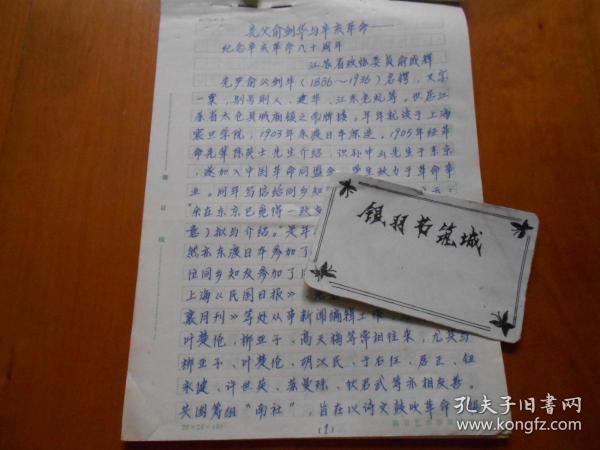 先父俞剑华与辛亥革命——
纪念辛亥革命八十周年
江苏省政协委员俞成辉
先父俞公剑华（1886～1936）名锷，又字
一粟，别号则人、建华、江东老虬等。世居江
苏省太仓县城厢镇之南牌楼。早年就读于上海
震旦学院，1903年东渡日本深造。1905年经革
命先辈陈英士先生介绍，识孙中山先生于东京，
遂加入中国革命同盟会，毕生致力于革命事
业。同年写信给同乡知
“余在东京已觅得一致友
意）拟为介绍。”是年
然亦东渡日本参加了
位同乡知友参加了
上海《民国日报》
襄月刊》等处从事新闻编辑工作
叶楚伧，柳亚子、高天梅等常相往来，尤其与
柳亚子、叶楚伧、胡汉民、于右任、居正、钮
永建、许世英、苏曼殊、狄君武等亦相友善。
共图筹组“南社”，旨在以诗文鼓吹革命
(1)
20×20=400
银羽若笼城
孔夫子旧书网
www.kongfz.com